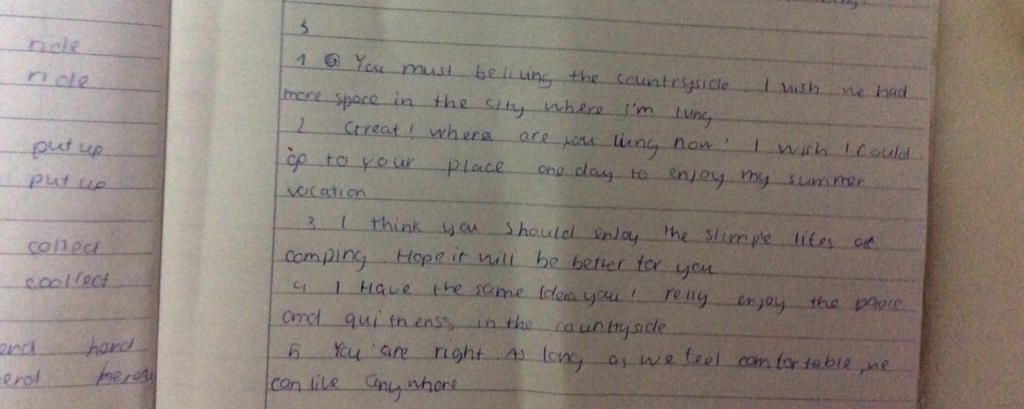 ride
ride
put up
put up
collect
coollect
end hand
erd
3
1 You must beliving the countryside. I wish we had
more space in the city where I'm lung
2 Great! where are you liung now! I wich I could
go to your place one day to enjoy my summer
vacation
3. I think you should enjoy the slimple lites at
comping Hope it will be better for you
4 I Have the same Idea you! relly enjoy the peace
and quithenss in the countryside
5 You are right As long as we feel comfortable, we
can live anywhere